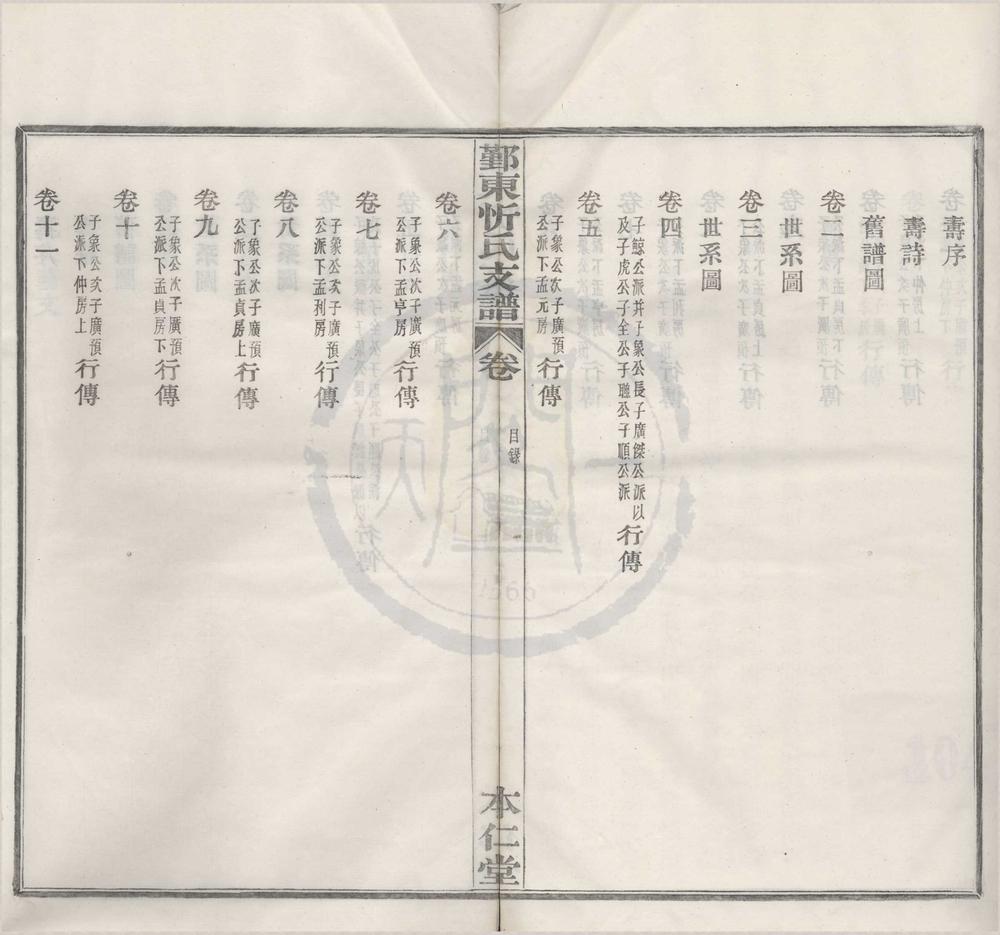 壽序
壽詩
舊譜圖
卷二
世系圖
卷三
世系圖
卷四
子鯨公派并子象公長子廣傑公派以
及子虎公子全公子聰公子順公派
行傳
卷五
子象公次子廣預
公派下孟元房
行傳
鄞東忻氏支譜
卷
目錄
本仁堂
卷六
子象公次子廣預
公派下孟亨房
行傳
卷七
子象公次子廣預
公派下孟利房
行傳
卷八
子象公次子廣預
公派下孟貞房上
行傳
卷九
子象公次子廣預
公派下孟貞房下
行傳
卷十
子象公次子廣預
公派下仲房上
行傳
卷十一